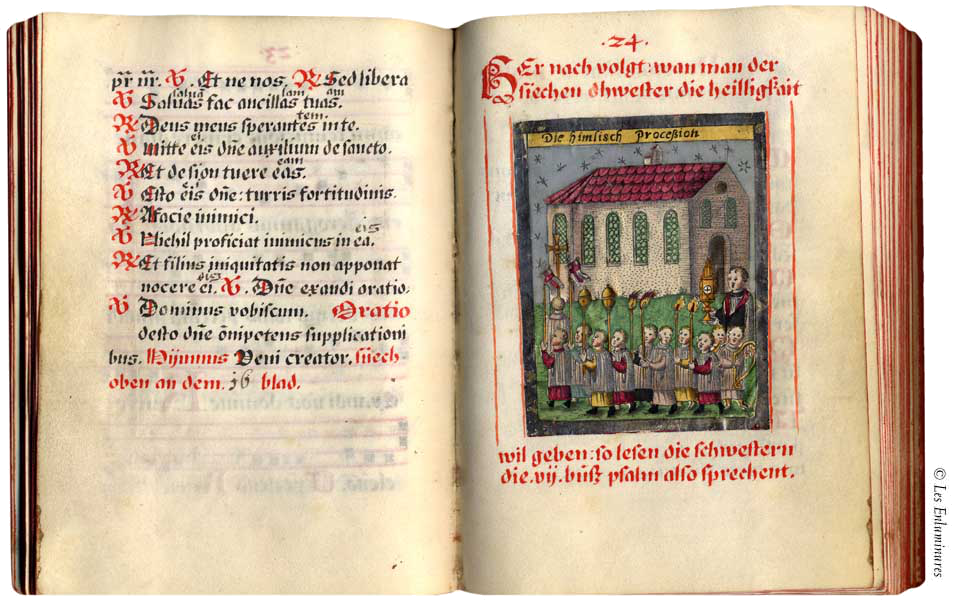 pr̄ nr̄. V. Et ne nos. R Sed libera
salvū lam am
V Saluas fac ancillas tuas.
tem.
R Deus meus sperantes in te.
ei
V Mitte eis dn̄e auxilium de sancto.
eam
R Et de sion tuere eas.
ei
V Esto eis dn̄e: turris fortitudinis.
R A facie inimici.
eis
V Nichil proficiat inimicus in ea.
R Et filius iniquitatis non apponat
eis
nocere ei. V. Dn̄e exaudi oratio.
V Dominus vobiscum. Oratio
desto dn̄e om̄ipotens supplicationi
bus. Hÿmnus Veni creator. suech
oben an dem. 16 blad.
.24.
HEr nach volgt: wan man der
siechen schwester die heilligkait
Die himlisch Proceßion
wil geben: so lesen die schwestern
die .vij. buͦsz psalm also sprechent.
© Les Enluminures